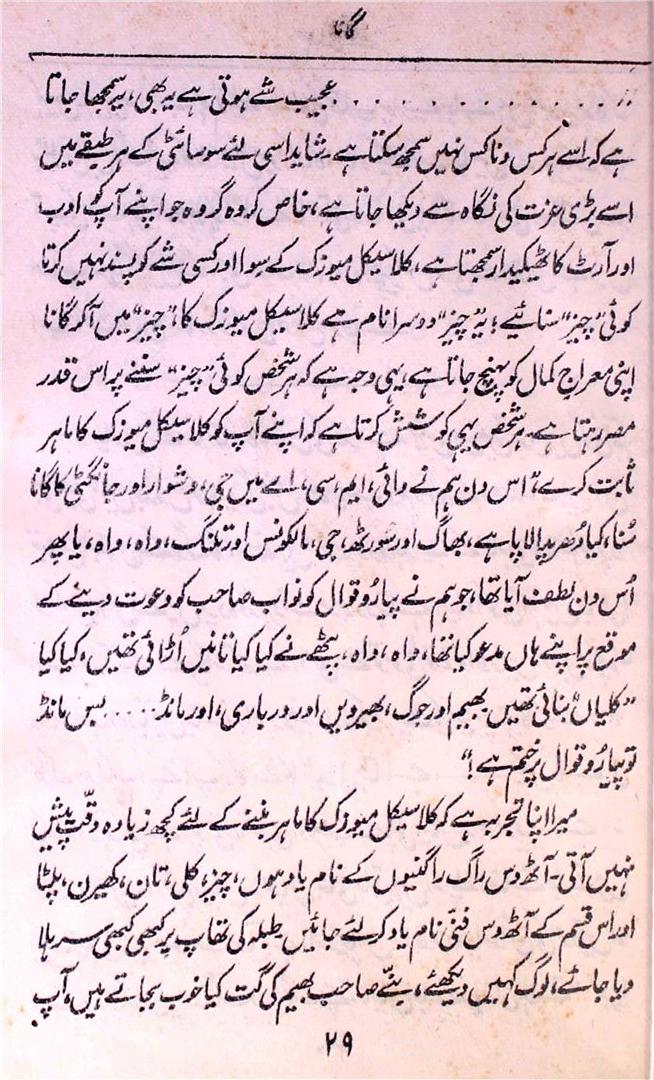 گانا
،، . . . . . . . . . . . . . عجیب شے ہوتی ہے یہ بھی، یہ سمجھا جاتا
ہے کہ اسے ہر کس و ناکس نہیں سمجھ سکتا ہے۔ شاید اسی لئے سوسائٹی کے ہر طبقے میں
اسے بڑی عزت کی نگاہ سے دیکھا جاتا ہے، خاص کر وہ گروہ جو اپنے آپ کو ادب
اور آرٹ کا ٹھیکیدار سمجھتا ہے، کلاسیکل میوزک کے سوا اور کسی شے کو پسند نہیں کرتا
کوئی ”چیز“ سنائیے! یہ ”چیز“ دوسرا نام ہے کلاسیکل میوزک کا، ”چیز“ میں آکر گانا
اپنی معراجِ کمال کو پہنچ جاتا ہے، یہی وجہ ہے کہ ہر شخص کوئی ”چیز“ سننے پر اس قدر
مصر رہتا ہے۔ ہر شخص یہی کوشش کرتا ہے کہ اپنے آپ کو کلاسیکل میوزک کا ماہر
ثابت کرے، ”اس دن ہم نے وائی، ایم، سی، اے میں جی، ورشوار اور جانگٹی کا گانا
سُنا، کیا دُھرپد الاپا ہے، بھاگ اور سورٹھ، جی، مالکونس اور تلنگ، واہ، واہ، یا پھر
اُس دن لطف آیا تھا، جو ہم نے پیارُو قوال کو نواب صاحب کو دعوت دینے کے
موقع پر اپنے ہاں مدعو کیا تھا، واہ، واہ، پٹھے نے کیا کیا تانیں اُڑائی تھیں، کیا کیا
”کلیاں“ بنائی تھیں بھیم اور جوگ، بھیرویں اور درباری، اور مانڈ . . . . . بس مانڈ
تو پیارُو قوال پر ختم ہے!“
میرا اپنا تجربہ ہے کہ کلاسیکل میوزک کا ماہر بننے کے لئے کچھ زیادہ دقّت پیش
نہیں آتی۔ آٹھ دس راگ راگنیوں کے نام یاد ہوں، چیز، کلی، تان، کھیرن، پلٹا
اور اس قسم کے آٹھ دس فنّی نام یاد کر لئے جائیں طبلہ کی تھاپ پر کبھی کبھی سر ہلا
دیا جائے، لوگ کہیں دیکھئے، بنّے صاحب بھیم کی گت کیا خوب بجاتے ہیں، آپ
۲۹